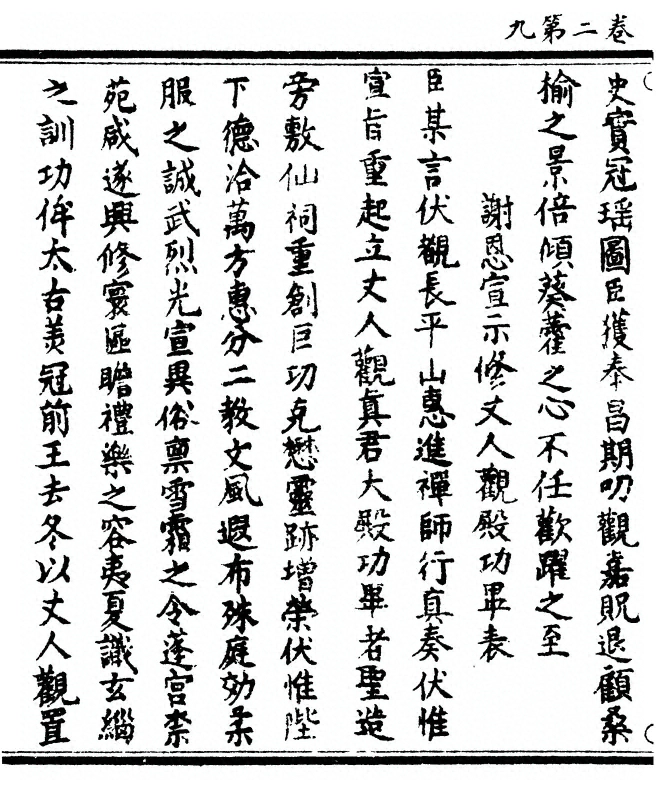 九第二卷
史實冠瑶圖臣獲奉昌期叨觀嘉貺退顧桑
榆之景倍傾葵藿之心不任歡躍之至
謝恩宣示修丈人觀殿功畢表
臣某言伏覩長平山惠進禪師行真奏伏惟
宣旨重起立丈人觀真君大殿功畢者聖造
旁敷仙祠重創巨功克懋靈跡増榮伏惟陛
下德洽萬方惠分二教文風遐布殊庭効柔
服之誠武烈光宣異俗禀雪霜之令蓬宫禁
苑咸遂興修寰區瞻禮樂之容夷夏識玄緇
之訓功侔太古美冠前王去冬以丈人觀置